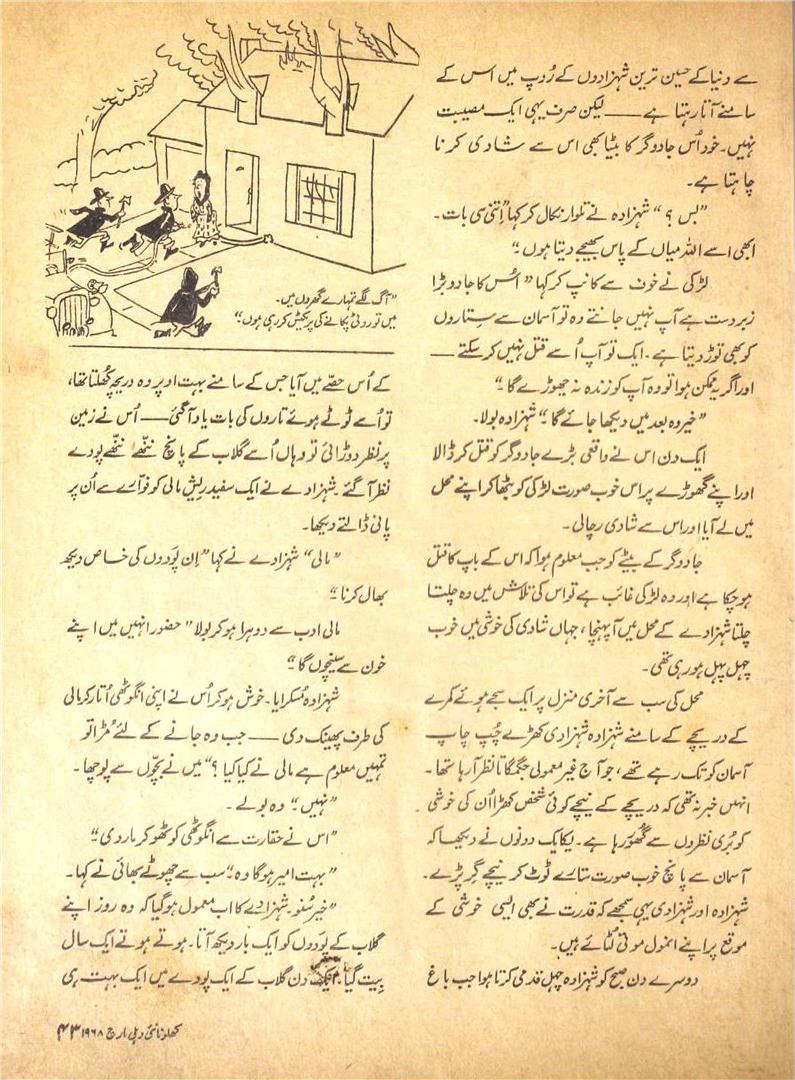 سے دنیا کے حسین ترین شہزادوں کے رُوپ میں اس کے
سامنے آتا رہتا ہے —— لیکن صرف یہی ایک مصیبت
نہیں۔ خود اُس جادوگر کا بیٹا بھی اس سے شادی کرنا
چاہتا ہے۔
”بس ؟“ شہزادہ نے تلوار نکال کر کہا ”اِتنی سی بات۔
ابھی اسے اللہ میاں کے پاس بھیجے دیتا ہوں۔“
لڑکی نے خوف سے کانپ کر کہا ”اُس کا جادو بڑا
زبردست ہے آپ نہیں جانتے وہ تو آسمان سے ستاروں
کو بھی توڑ دیتا ہے۔ ایک تو آپ اُسے قتل نہیں کر سکتے ——
اور اگر یہ ممکن ہوا تو وہ آپ کو زندہ نہ چھوڑے گا۔“
”خیر وہ بعد میں دیکھا جائے گا۔“ شہزادہ بولا۔
ایک دن اس نے واقعی بڑے جادوگر کو قتل کر ڈالا
اور اپنے گھوڑے پر اس خوب صورت لڑکی کو بٹھا کر اپنے محل
میں لے آیا اور اس سے شادی رچالی۔
جادوگر کے بیٹے کو جب معلوم ہوا کہ اس کے باپ کا قتل
ہو چکا ہے اور وہ لڑکی غائب ہے تو اس کی تلاش میں وہ چلتا
چلتا شہزادے کے محل میں آ پہنچا، جہاں شادی کی خوشی میں خوب
چہل پہل ہو رہی تھی۔
محل کی سب سے آخری منزل پر ایک سجے ہوئے کمرے
کے دریچے کے سامنے شہزادہ شہزادی کھڑے چُپ چاپ
آسمان کو تک رہے تھے، جو آج غیر معمولی جگمگاتا نظر آ رہا تھا۔
انہیں خبر نہ تھی کہ دریچے کے نیچے کوئی شخص کھڑا اُن کی خوشی
کو بُری نظروں سے گھُور رہا ہے۔ یکایک دونوں نے دیکھا کہ
آسمان سے پانچ خوب صورت ستارے ٹوٹ کر نیچے گر پڑے۔
شہزادہ اور شہزادی یہی سمجھے کہ قدرت نے بھی ایسی خوشی کے
موقع پر اپنے انمول موتی لُٹائے ہیں۔
دوسرے دن صبح کو شہزادہ چہل قدمی کرتا ہوا جب باغ
”آگ لگے تمہارے گھروں میں۔
میں تو روٹی پکانے کی پریکٹس کر رہی ہوں۔“
کے اُس حصّے میں آیا جس کے سامنے بہت اوپر وہ دریچہ کھُلتا تھا،
تو اُسے ٹوٹے ہوئے تاروں کی بات یاد آ گئی —— اُس نے زمین
پر نظر دوڑائی تو وہاں اُسے گلاب کے پانچ ننّھے ننّھے پودے
نظر آ گئے۔ شہزادے نے ایک سفید ریش مالی کو فوّارے سے اُن پر
پانی ڈالتے دیکھا۔
”مالی“ شہزادے نے کہا ”اِن پودوں کی خاص دیکھ
بھال کرنا۔“
مالی ادب سے دوہرا ہو کر بولا ”حضور انہیں میں اپنے
خون سے سینچوں گا۔“
شہزادہ مُسکرایا۔ خوش ہو کر اُس نے اپنی انگوٹھی اُتار کر مالی
کی طرف پھینک دی —— جب وہ جانے کے لئے مُڑا تو
تمہیں معلوم ہے مالی نے کیا کیا ؟“ میں نے بچّوں سے پوچھا۔
”نہیں“ وہ بولے۔
”اس نے حقارت سے انگوٹھی کو ٹھوکر مار دی۔“
”بہت امیر ہو گا وہ۔“ سب سے چھوٹے بھائی نے کہا۔
”خیر سُنو۔ شہزادے کا اب معمول ہو گیا کہ وہ روز اپنے
گلاب کے پودوں کو ایک بار دیکھ آتا۔ ہوتے ہوتے ایک سال
بیت گیا۔ ایک دن گلاب کے ایک پودے میں ایک بہت ہی
کھلونا نئی دہلی مارچ ۱۹۶۸ ۴۳